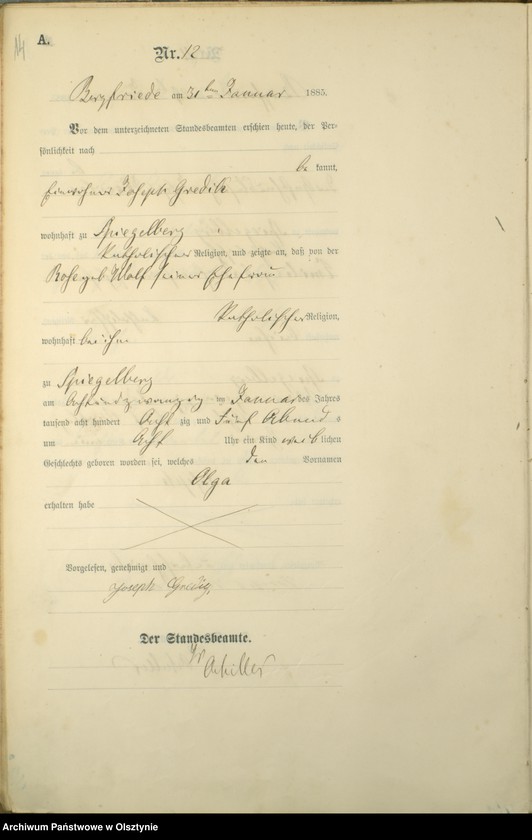 14
A.
Nr. 12
Bergfriede am 31ten Januar 1885.
Vor dem unterzeichneten Standesbeamten erschien heute, der Per-
sönlichkeit nach
be kannt,
Einwohner Joseph
wohnhaft zu Spiegelberg
katholischer Religion, und zeigte an, daß von der
geb. Wolf seiner Ehefrau
katholischer Religion,
wohnhaft bei ihm
zu Spiegelberg
am Achtundzwanzig im Januar des Jahres
tausend acht hundert Acht zig und Fünf Abend s
um Acht Uhr ein Kind weib lichen
Geschlechts geboren worden sei, welches den Vornamen
Olga
erhalten habe
Vorgelesen, genehmigt und
Joseph
Der Standesbeamte.
Achiller
Archiwum Państwowe w Olsztynie